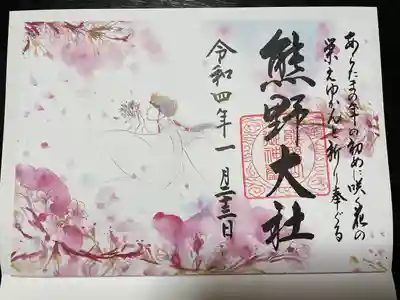 あらたまの年の初めに咲く花の
栄えゆかんと祈り奉ぐる
熊野大社
令和四年一月 日